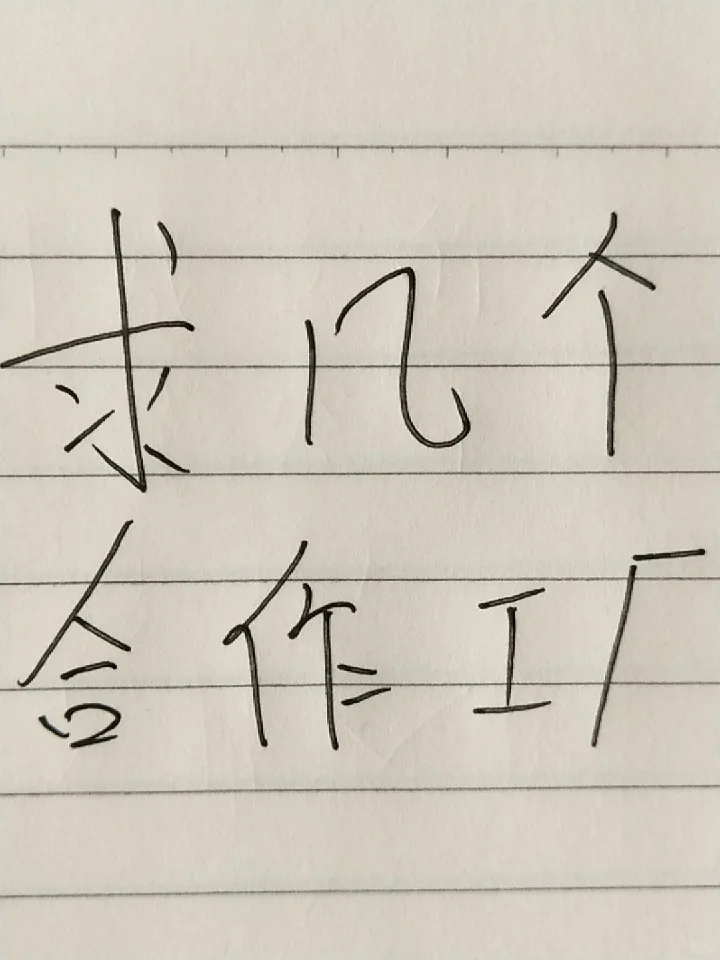 求几个
合作工厂